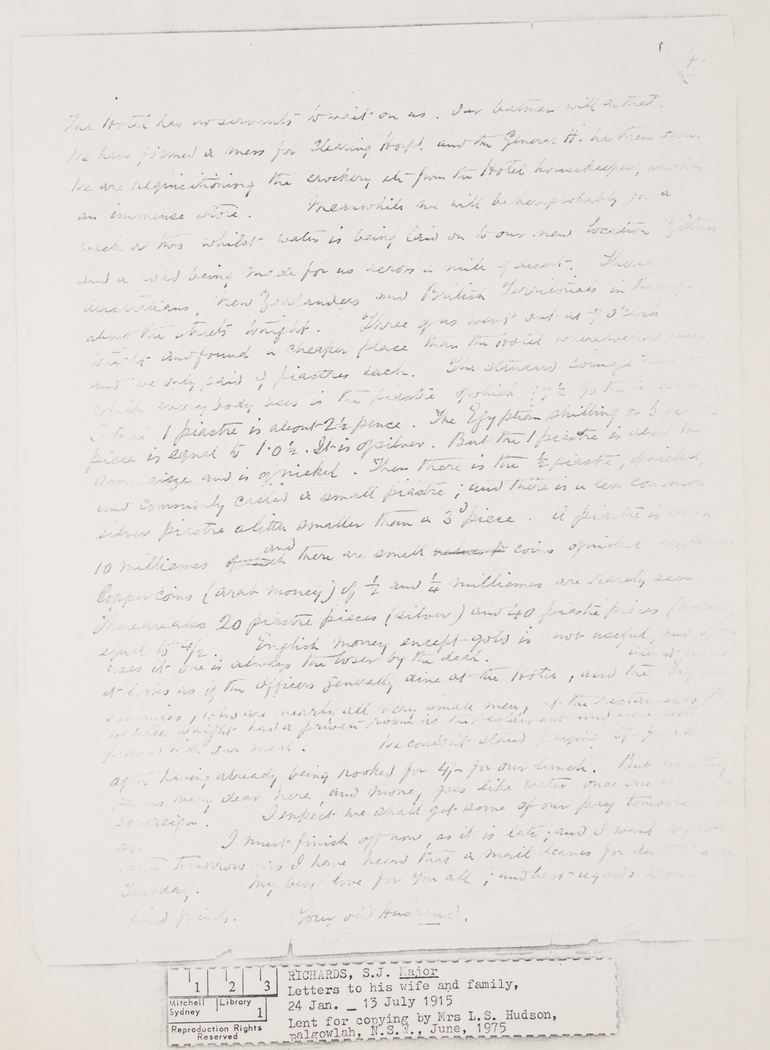 4
The Hotel has no servants to wait on us. Our batmen will do that.
We have formed a mess for Clearing Hospl. and the General H. has their own.
We are requisitioning the crockery etc from the Hotel housekeeper, who has
an immense store. Meanwhile we will be here probably for a
week or two whilst water is being laid on to our new location
and a road being made for us across a mile of desert. There are
Australians, New Zealanders and British Territorials in
about the streets tonight. Three of us went out at 7 o'clock
tonight and found a cheaper place than the Hotel where we had
and we only paid 9 piastres each. The standard coinage here
which everybody uses is the piastre of which 97½ go to the
so that 1 piastre is about 2½ pence. The Egyptian shilling or 5 piastre
piece is equal to 1.0½. It is of silver. But the 1 piastre is about the
same size and is of nickel. Then there is the ½ piastre, of nickel
and commonly called a small piastre; and there is a less common
silver piastre a little smaller than a 3d piece. A piastre is worth
10 milliemes and there are small coins of nickel
Copper coins (arab money) of ½ and ¼ milliemes are rarely seen
There are also 20 piastre pieces (silver) and 40 piastre pieces
equal to 4/2. English money except gold is not useful, and
uses it one is always the loser by the deal.
it looks as if the officers generally dine at the Hotel, and the
Tommies, who are nearly all very small men, at the restaurants.
we three tonight had a private room at the restaurant and were well
pleased with our meal. We couldn't stand paying
after having already being rooked for 4/- for our lunch. But everything
seems very dear here, and money goes like water once one
sovereign. I expect we shall get some of our pay tomorrow
so. I must finish off now, as it is late; and I want to
letter tomorrow as I have heard that a mail leaves for
Tuesday. My best love for you all; and best regards to our
kind friends. Your old Husband.
1 2 3
Mitchell Library
Sydney 1
Reproduction Rights
Reserved
RICHARDS, S.J. Major
Letters to his wife and family,
24 Jan. _ 13 July 1915
Lent for copying by Mrs L.S. Hudson,
palgowlah, N.S.W., June, 1975